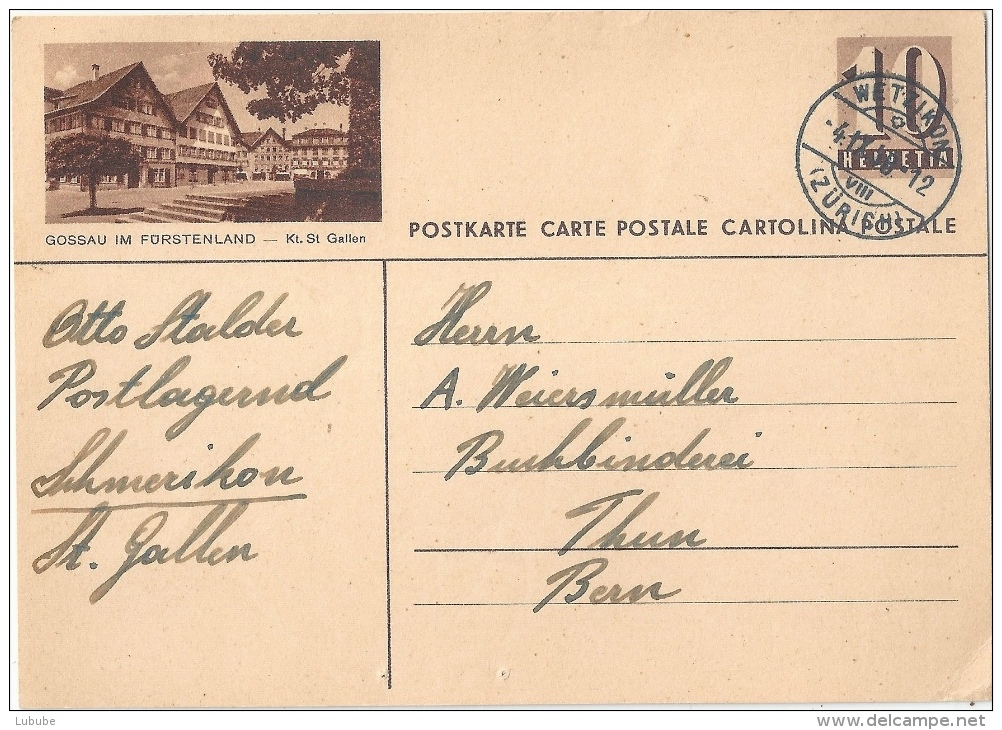 GOSSAU IM FÜRSTENLAND — Kt. St Gallen
POSTKARTE CARTE POSTALE CARTOLINA POSTALE
10
HELVETIA
WETZIKON
VIII
(ZÜRICH)
Otto Stalder
Postlagernd
Schmerikon
St. Gallen
Herrn
A. Weiersmüller
Buchbinderei
Thun
Bern
Lubube
www.delcampe.net